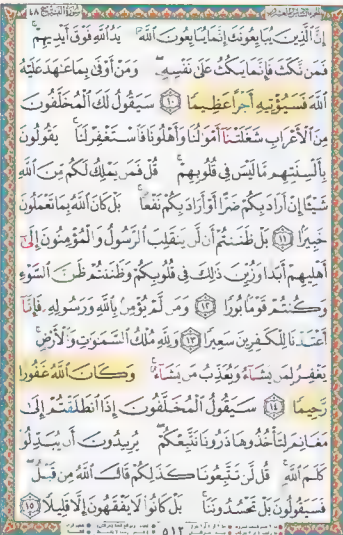 سُورَةُ الفَتْحِ ٤٨
إِنَّ ٱلَّذِينَ يُبَايِعُونَكَ إِنَّمَا يُبَايِعُونَ ٱللَّهَ يَدُ ٱللَّهِ فَوْقَ أَيْدِيهِمْ ۚ
فَمَن نَّكَثَ فَإِنَّمَا يَنكُثُ عَلَىٰ نَفْسِهِۦ ۖ وَمَنْ أَوْفَىٰ بِمَا عَٰهَدَ عَلَيْهُ
ٱللَّهَ فَسَيُؤْتِيهِ أَجْرًا عَظِيمًا ١٠ سَيَقُولُ لَكَ ٱلْمُخَلَّفُونَ
مِنَ ٱلْأَعْرَابِ شَغَلَتْنَا أَمْوَٰلُنَا وَأَهْلُونَا فَٱسْتَغْفِرْ لَنَا ۚ يَقُولُونَ
بِأَلْسِنَتِهِم مَّا لَيْسَ فِى قُلُوبِهِمْ ۚ قُلْ فَمَن يَمْلِكُ لَكُم مِّنَ ٱللَّهِ
شَيْـًٔا إِنْ أَرَادَ بِكُمْ ضَرًّا أَوْ أَرَادَ بِكُمْ نَفْعًۢا ۚ بَلْ كَانَ ٱللَّهُ بِمَا تَعْمَلُونَ
خَبِيرًۢا ١١ بَلْ ظَنَنتُمْ أَن لَّن يَنقَلِبَ ٱلرَّسُولُ وَٱلْمُؤْمِنُونَ إِلَىٰٓ
أَهْلِيهِمْ أَبَدًا وَزُيِّنَ ذَٰلِكَ فِى قُلُوبِكُمْ وَظَنَنتُمْ ظَنَّ ٱلسَّوْءِ
وَكُنتُمْ قَوْمًۢا بُورًا ١٢ وَمَن لَّمْ يُؤْمِنۢ بِٱللَّهِ وَرَسُولِهِۦ فَإِنَّآ
أَعْتَدْنَا لِلْكَٰفِرِينَ سَعِيرًا ١٣ وَلِلَّهِ مُلْكُ ٱلسَّمَٰوَٰتِ وَٱلْأَرْضِ ۚ
يَغْفِرُ لِمَن يَشَآءُ وَيُعَذِّبُ مَن يَشَآءُ ۚ وَكَانَ ٱللَّهُ غَفُورًا
رَّحِيمًا ١٤ سَيَقُولُ ٱلْمُخَلَّفُونَ إِذَا ٱنطَلَقْتُمْ إِلَىٰ
مَغَانِمَ لِتَأْخُذُوهَا ذَرُونَا نَتَّبِعْكُمْ ۖ يُرِيدُونَ أَن يُبَدِّلُوا۟
كَلَٰمَ ٱللَّهِ ۚ قُل لَّن تَتَّبِعُونَا كَذَٰلِكُمْ قَالَ ٱللَّهُ مِن قَبْلُ ۖ
فَسَيَقُولُونَ بَلْ تَحْسُدُونَنَا ۚ بَلْ كَانُوا۟ لَا يَفْقَهُونَ إِلَّا قَلِيلًا ١٥
٥١٢